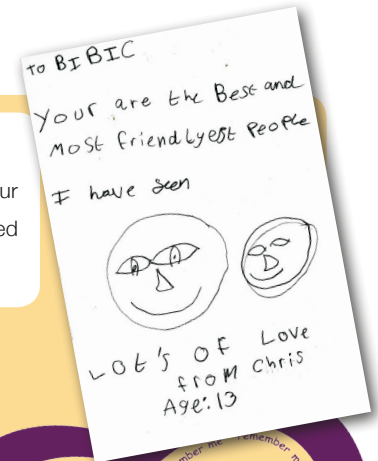 to BIBIC
Your are the Best and
Most friendlyest People
I have seen
Lot's OF Love
from Chris
Age: 13
ur
ed
mber me remember m